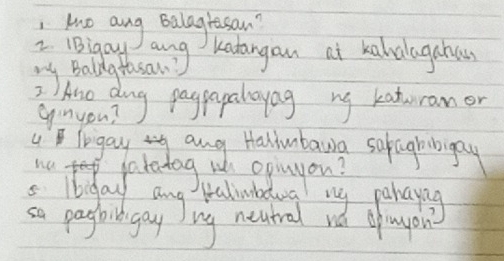 1. Ano ang Balagtasan?
2. IBigay ang katangian at kahalagahan
ng Balagtasan?
3 Ano ang pagpapahayag ng katwiran or
Opinyon?
4 Ibigay ang Halimbawa sa pagbibigay
na patatag na opinyon?
5 Ibigay ang Halimbawa ng pahayag
sa pagbibigay ng neutral na opinyon?